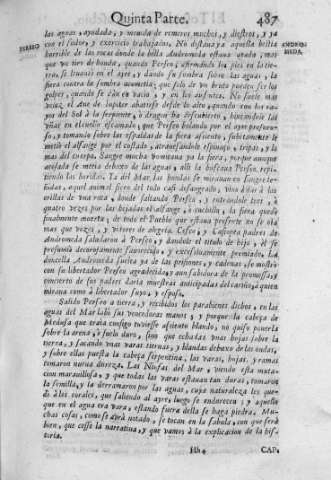 Quinta Parte. 487
las aguas, ayudada, y menuda de remeros muchos, y diestros, y ya
con el sudor, y exercicio trabajados, No distava ya aquella bestia
PERSEO
horrible de las rocas donde la bella Andromeda estava atada, mas
ANDROMEDA.
que un tiro de honda, quando Perseo, afirmando los pies en la tierra,
se levantò en el ayre, y dando su sombra sobre las aguas, la
fiera contra la sombra acometia; que solo de un bruto
golpes, quando se caía en vazio, y en los ausentes. No
vezes el Ave de Jupiter abatirse desde lo alto, quando con los rayos
del Sol à la serpiente, ò dragon ha descubierto, hincandole las
uñas en el cuello escamado, que Perseo bolando por el ayre
y tomando sobre las espaldas de la fiera assiento,
metiò el alfange por el costado, atravesandole espinazo, tripas, y lo
mas del cuerpo. Sangre mucha vomitava ya la fiera, porque aunque
se metia debaxo de las aguas, allí la buscava Perseo,
tiendo las heridas. Ya del Mar las ondas se miravan en Sangre
teñidas, aquel animal fiero del todo casi desangrado, vino à dar à las
orillas de una roca, donde saltando Perseo, y entrandole tres, ò
quatro vezes por las hijadas el alfange, ò cuchillo, la fiera quedò
finalmente muerta, de todo el Pueblo que estava presente no se oía
mas que vozes, y vitores de alegria. Cefeo, y Cassiopea padres de
Andromeda saludaron à Perseo, y dandole el titulo de hijo, èl se
presumiò favorecido, y excessivamente premiado. La
doncella Andromeda suelta ya de las prisiones, y cadenas, se mostrò
con su libertador Perseo agradecida; y aun sabidora de la promessa, y
concierto de sus padres daria muestras anticipadas del cariño, à quien
mirava como à libertador suyo, y esposo.
Salido Perseo a tierra, y recibidos los parabienes dichos, en las
aguas del Mar labò sus vencedoras manos; y porque la cabeça de
Medusa que traia consigo tuviesse assiento blando, no quiso ponerla
sobre la arena, ò suelo duro, sino que echadas unas hojas sobre la
tierra, y sacando unas varas tiernas, y blandas debaxo de las ondas,
y sobre ellas puesta la cabeça serpentina, las varas, hojas, y ramas
tomaron nueva dureza. Las Ninfas del Mar, viendo esta mutacion
maravillosa, y que todas las varas estavan tan duras, tomaron
la semilla, y la derramaron por las aguas, cuya naturaleza les quedò
à los corales, que saliendo al ayre, luego se endurecen; y aquello
que en el agua era vara, estando fuera della se haga piedra. Muchas
cosas, como se dirà notado, se tocan en la fabula, con que serà
bien, que cesse la narrativa, y que vamos à la explicacion de la historia.
Hh 4 CAP.